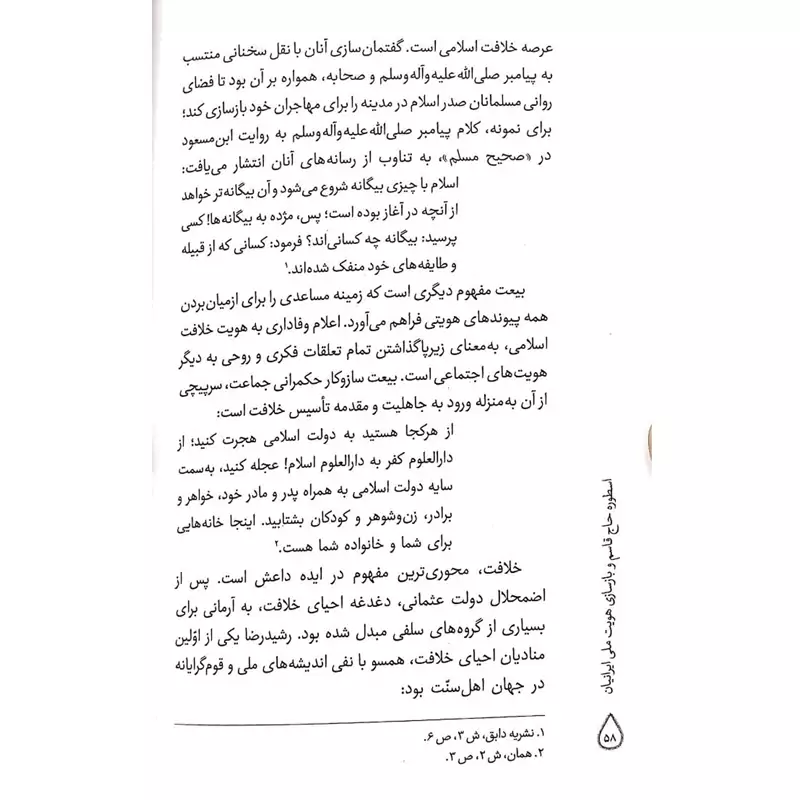 عرصه خلافت اسلامی است. گفتمان‌سازی آنان با نقل سخنانی منتسب
به پیامبر صلی‌الله‌علیه‌وآله‌وسلم و صحابه، همواره بر آن بود تا فضای
روانی مسلمانان صدر اسلام در مدینه را برای مهاجران خود بازسازی کند؛
برای نمونه، کلام پیامبر صلی‌الله‌علیه‌وآله‌وسلم به روایت ابن‌مسعود
در «صحیح مسلم»، به تناوب از رسانه‌های آنان انتشار می‌یافت:
اسلام با چیزی بیگانه شروع می‌شود و آن بیگانه‌تر خواهد
از آنچه در آغاز بوده است؛ پس، مژده به بیگانه‌ها! کسی
پرسید: بیگانه چه کسانی‌اند؟ فرمود: کسانی که از قبیله
و طایفه‌های خود منفک شده‌اند.۱
بیعت مفهوم دیگری است که زمینه مساعدی را برای ازمیان‌بردن
همه پیوندهای هویتی فراهم می‌آورد. اعلام وفاداری به هویت خلافت
اسلامی، به‌معنای زیرپاگذاشتن تمام تعلقات فکری و روحی به دیگر
هویت‌های اجتماعی است. بیعت سازوکار حکمرانی جماعت، سرپیچی
از آن به‌منزله ورود به جاهلیت و مقدمه تأسیس خلافت است:
از هرکجا هستید به دولت اسلامی هجرت کنید؛ از
دارالعلوم کفر به دارالعلوم اسلام! عجله کنید، به‌سمت
سایه دولت اسلامی به همراه پدر و مادر خود، خواهر و
برادر، زن‌وشوهر و کودکان بشتابید. اینجا خانه‌هایی
برای شما و خانواده شما هست.۲
خلافت، محوری‌ترین مفهوم در ایده داعش است. پس از
اضمحلال دولت عثمانی، دغدغه احیای خلافت، به آرمانی برای
بسیاری از گروه‌های سلفی مبدل شده بود. رشیدرضا یکی از اوّلین
منادیان احیای خلافت، همسو با نفی اندیشه‌های ملی و قوم‌گرایانه
در جهان اهل‌سنّت بود:
۱. نشریه دابق، ش ۳، ص ۶.
۲. همان، ش ۲، ص ۳.
اسطوره حاج قاسم و بازسازی هویت ملی ایرانیان
۵۸